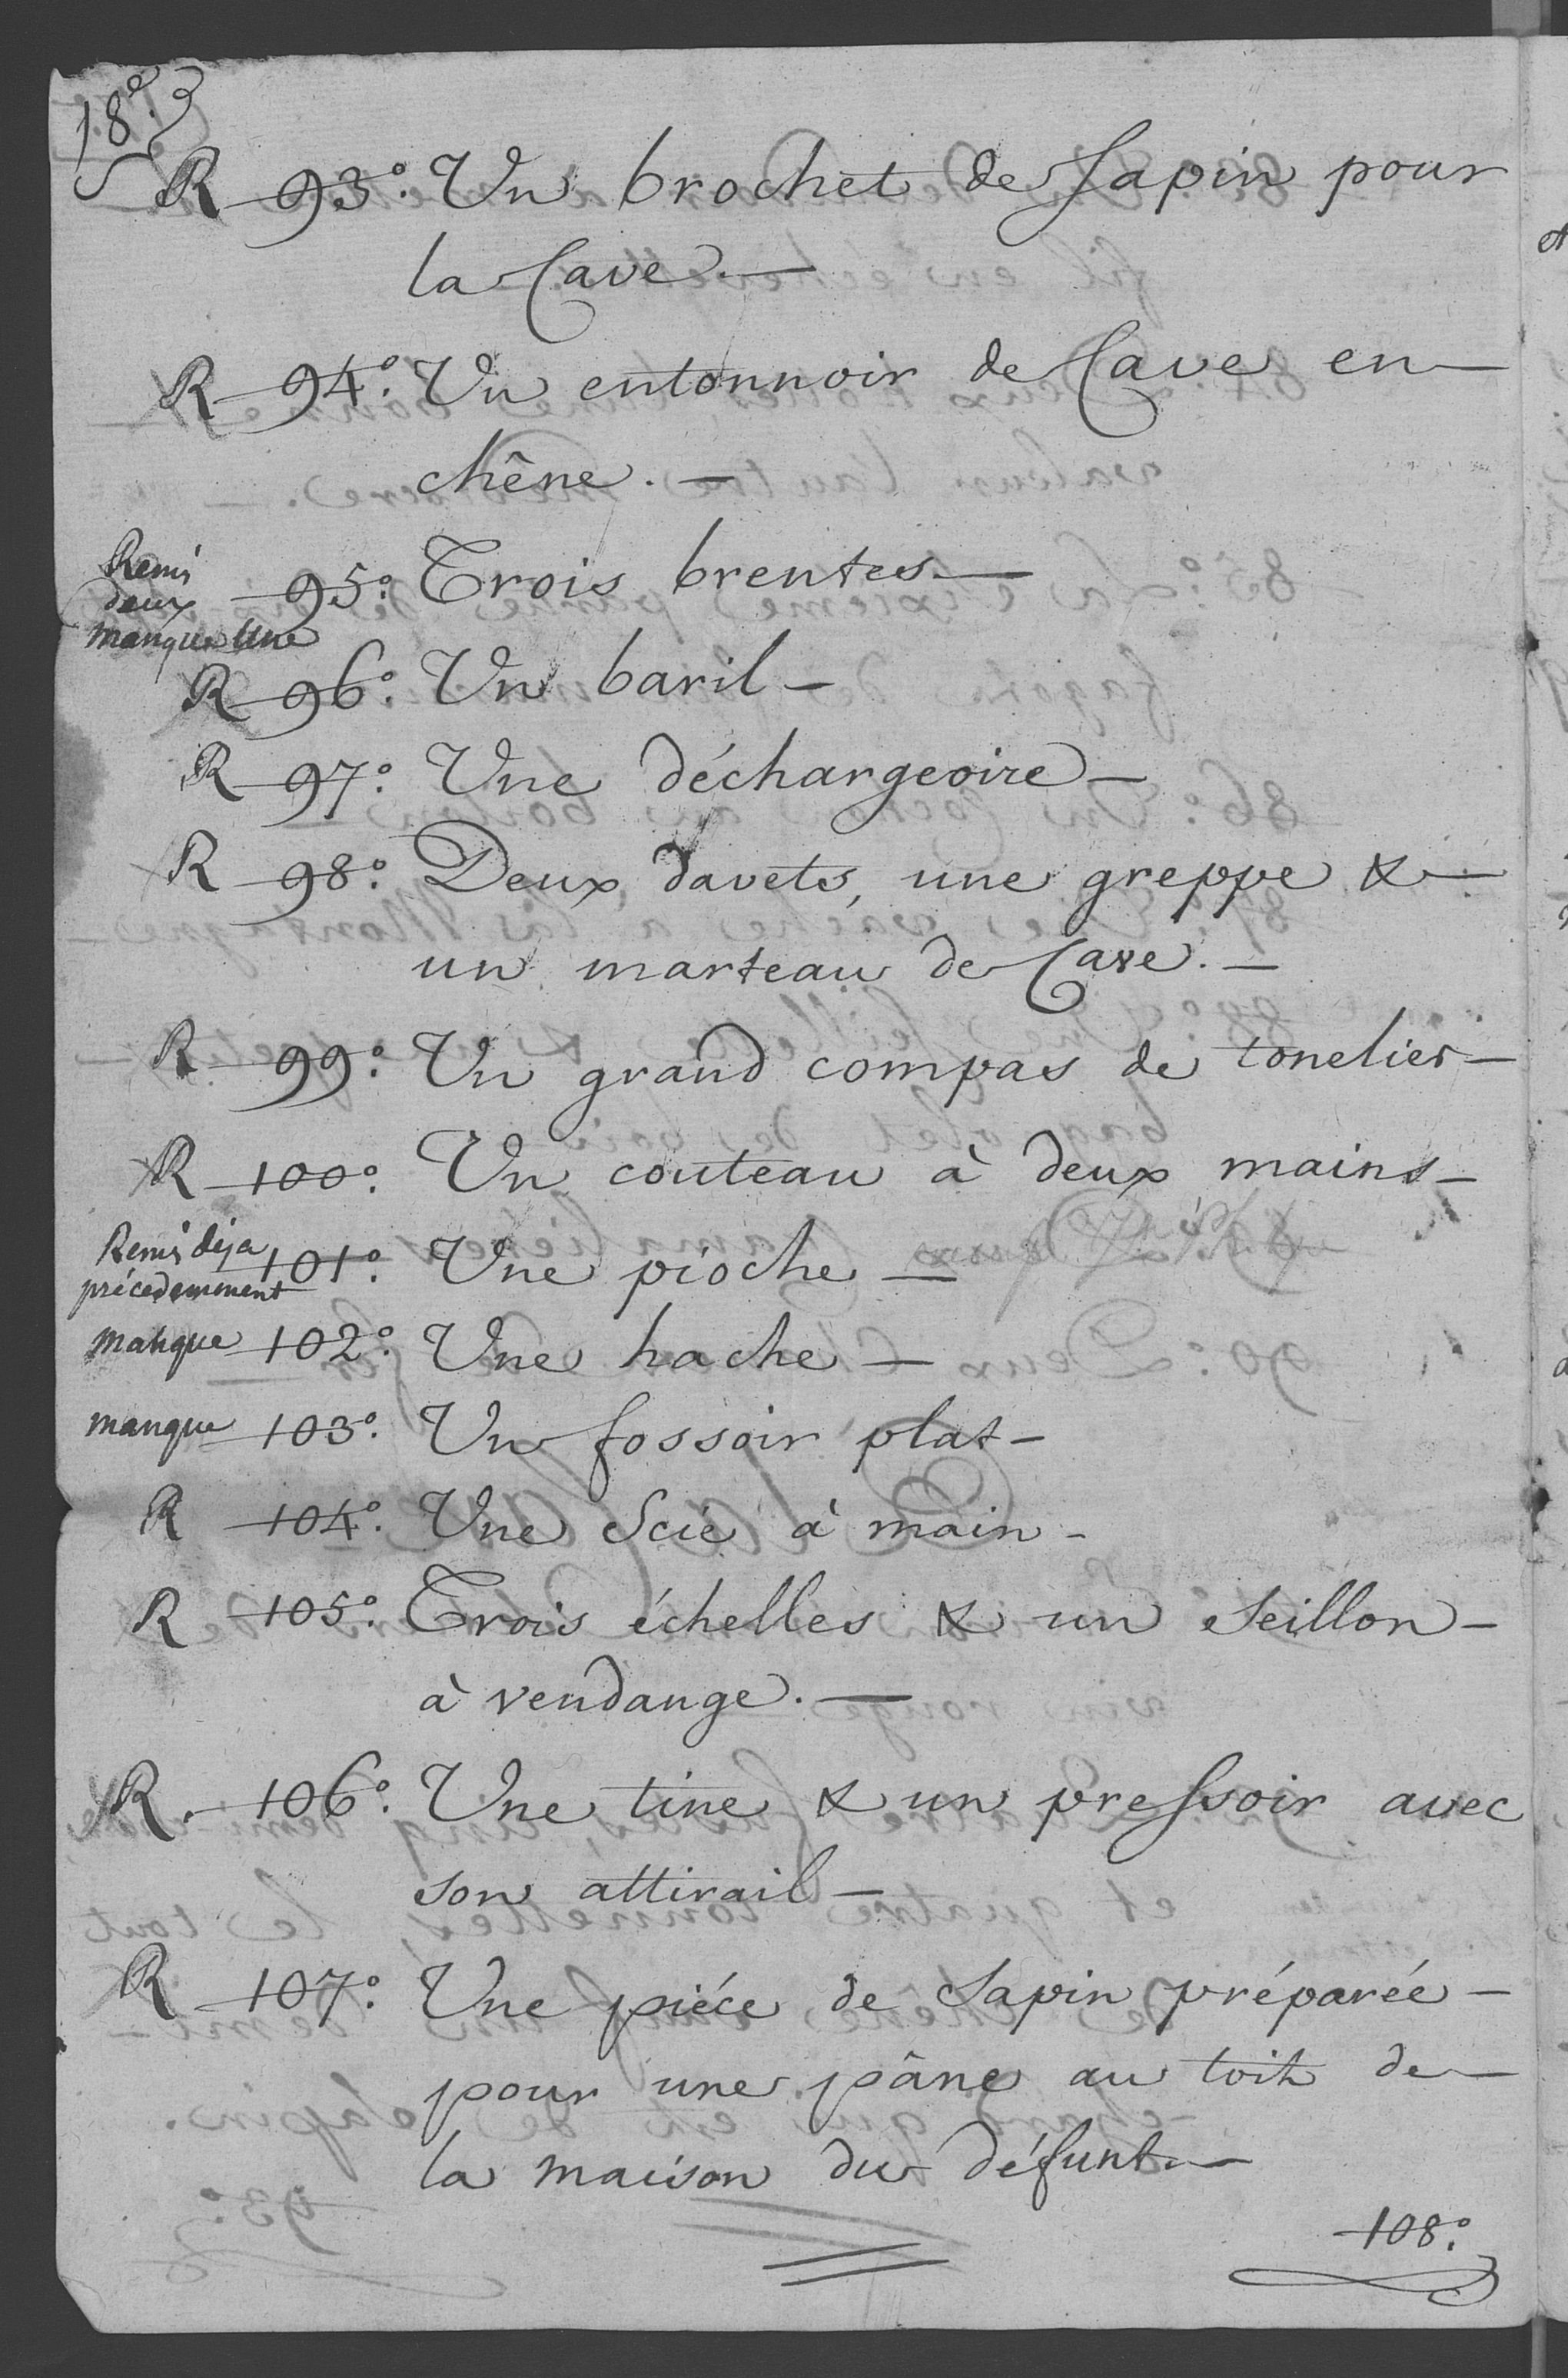 18.e
R 93.o Un brochet de sapin pour
la Cave. —
R 94.o Un entonnoir de Cave en —
chêne. —
Remis
deux
manque Une
95.o Trois brentes —
R 96.o Un baril —
R 97.o Une déchargeoire —
R 98.o Deux davets, une greppe & —
un marteau de Cave. —
R 99.o Un grand compas de tonelier —
R 100.o Un couteau à deux mains —
Remis déja
précedemment
101.o Une pioche —
manque 102.o Une hache —
manque 103.o Un fossoir plat —
R 104.o Une Scie à main —
R 105.o Trois échelles & un Seillon —
à vendange. —
R. 106.o Une tine & un pressoir avec
son attirail —
R 107.o Une piéce de Sapin préparée —
pour une pâne au toit de —
la maison du défunt. —
108.o